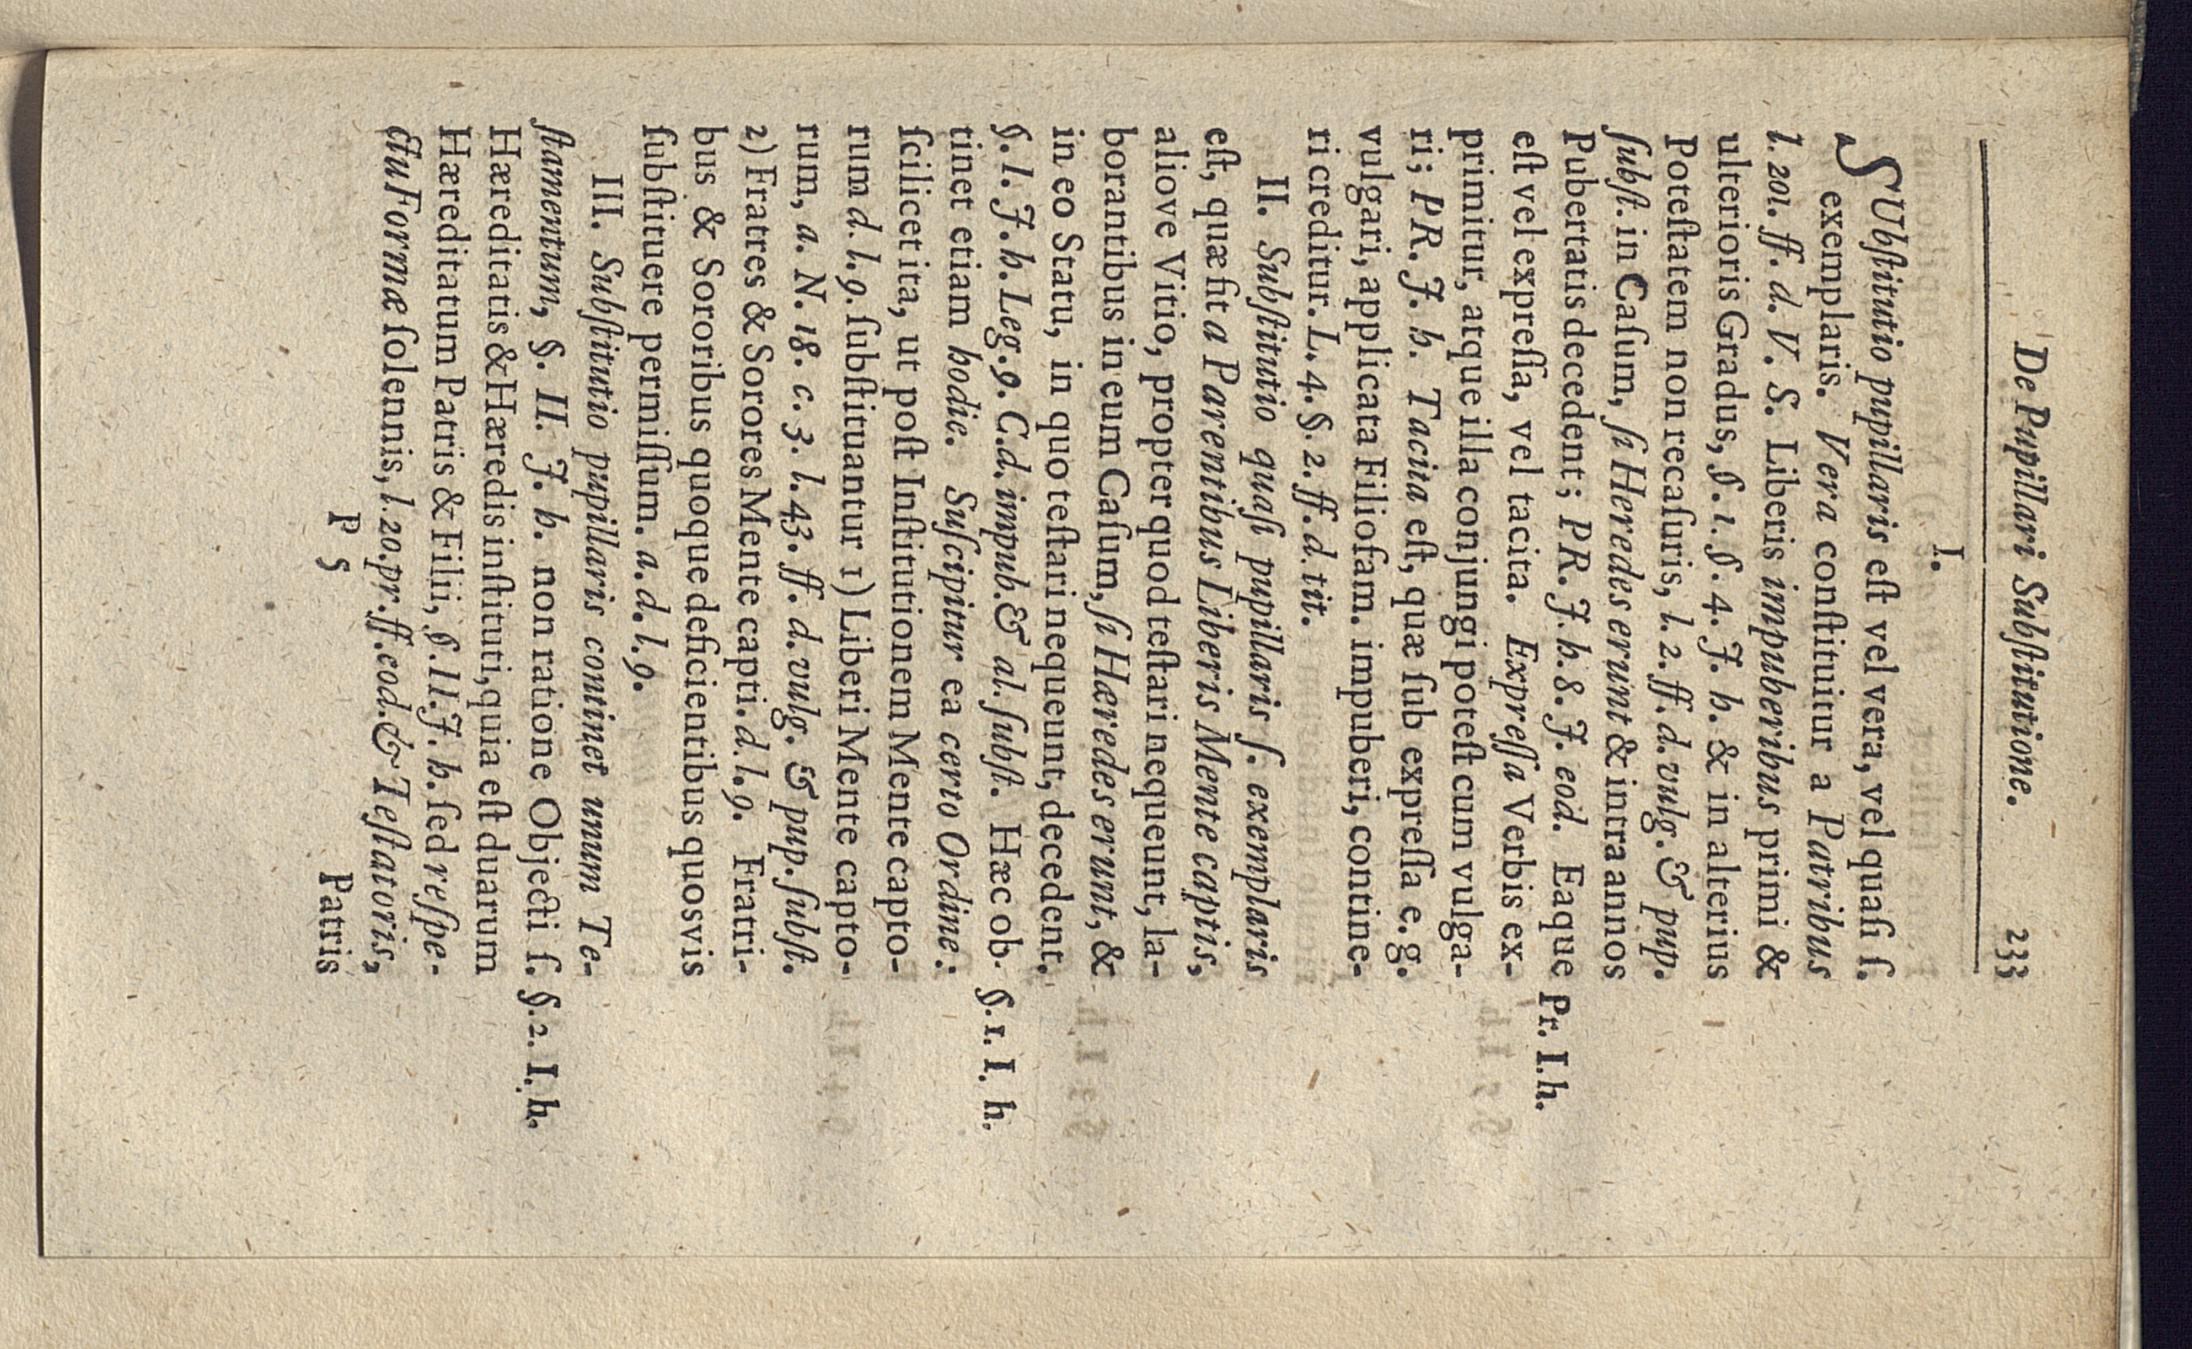 De Pupillari Subſtitutione. 233
I.
SUbſtitutio pupillaris eſt vel vera, vel quaſi ſ.
exemplaris. Vera conſtituitur a Patribus
l. 201. ff. d. V. S. Liberis impuberibus primi &
ulterioris Gradus, §. 1. §. 4. J. h. & in alterius
Poteſtatem non recaſuris, l. 2. ff. d. vulg. & pup.
ſubſt. in Caſum, ſi Heredes erunt & intra annos
Pubertatis decedent; PR. J. h. 8. J. eod. Eaque Pr. I. h.
eſt vel expreſſa, vel tacita. Expreſſa Verbis ex-
primitur, atque illa conjungi poteſt cum vulga-
ri; PR. J. h. Tacita eſt, quæ ſub expreſſa e. g.
vulgari, applicata Filiofam. impuberi, contine-
ri creditur. L. 4. §. 2. ff. d. tit.
II. Subſtitutio quaſi pupillaris ſ. exemplaris
eſt, quæ fit a Parentibus Liberis Mente captis,
aliove Vitio, propter quod teſtari nequeunt, la-
borantibus in eum Caſum, ſi Hæredes erunt, &
in eo Statu, in quo teſtari nequeunt, decedent.
§. 1. J. h. Leg. 9. C. d. impub. & al. ſubſt. Hæc ob- §. 1. I. h.
tinet etiam hodie. Suſcipitur ea certo Ordine:
ſcilicet ita, ut poſt Inſtitutionem Mente capto-
rum d. l. 9. ſubſtituantur 1) Liberi Mente capto-
rum, a. N. 18. c. 3. l. 43. ff. d. vulg. & pup. ſubſt.
2) Fratres & Sorores Mente capti. d. l. 9. Fratri-
bus & Sororibus quoque deficientibus quosvis
ſubſtituere permiſſum. a. d. l. 9.
III. Subſtitutio pupillaris continet unum Te-
ſtamentum, §. II. J. h. non ratione Objecti ſ. §. 2. I. h.
Hæreditatis & Hæredis inſtituti, quia eſt duarum
Hæreditatum Patris & Filii, §. II. J. h. ſed reſpe-
ctu Formæ ſolennis, l. 20. pr. ff. eod. & Teſtatoris,
P 5 Patris